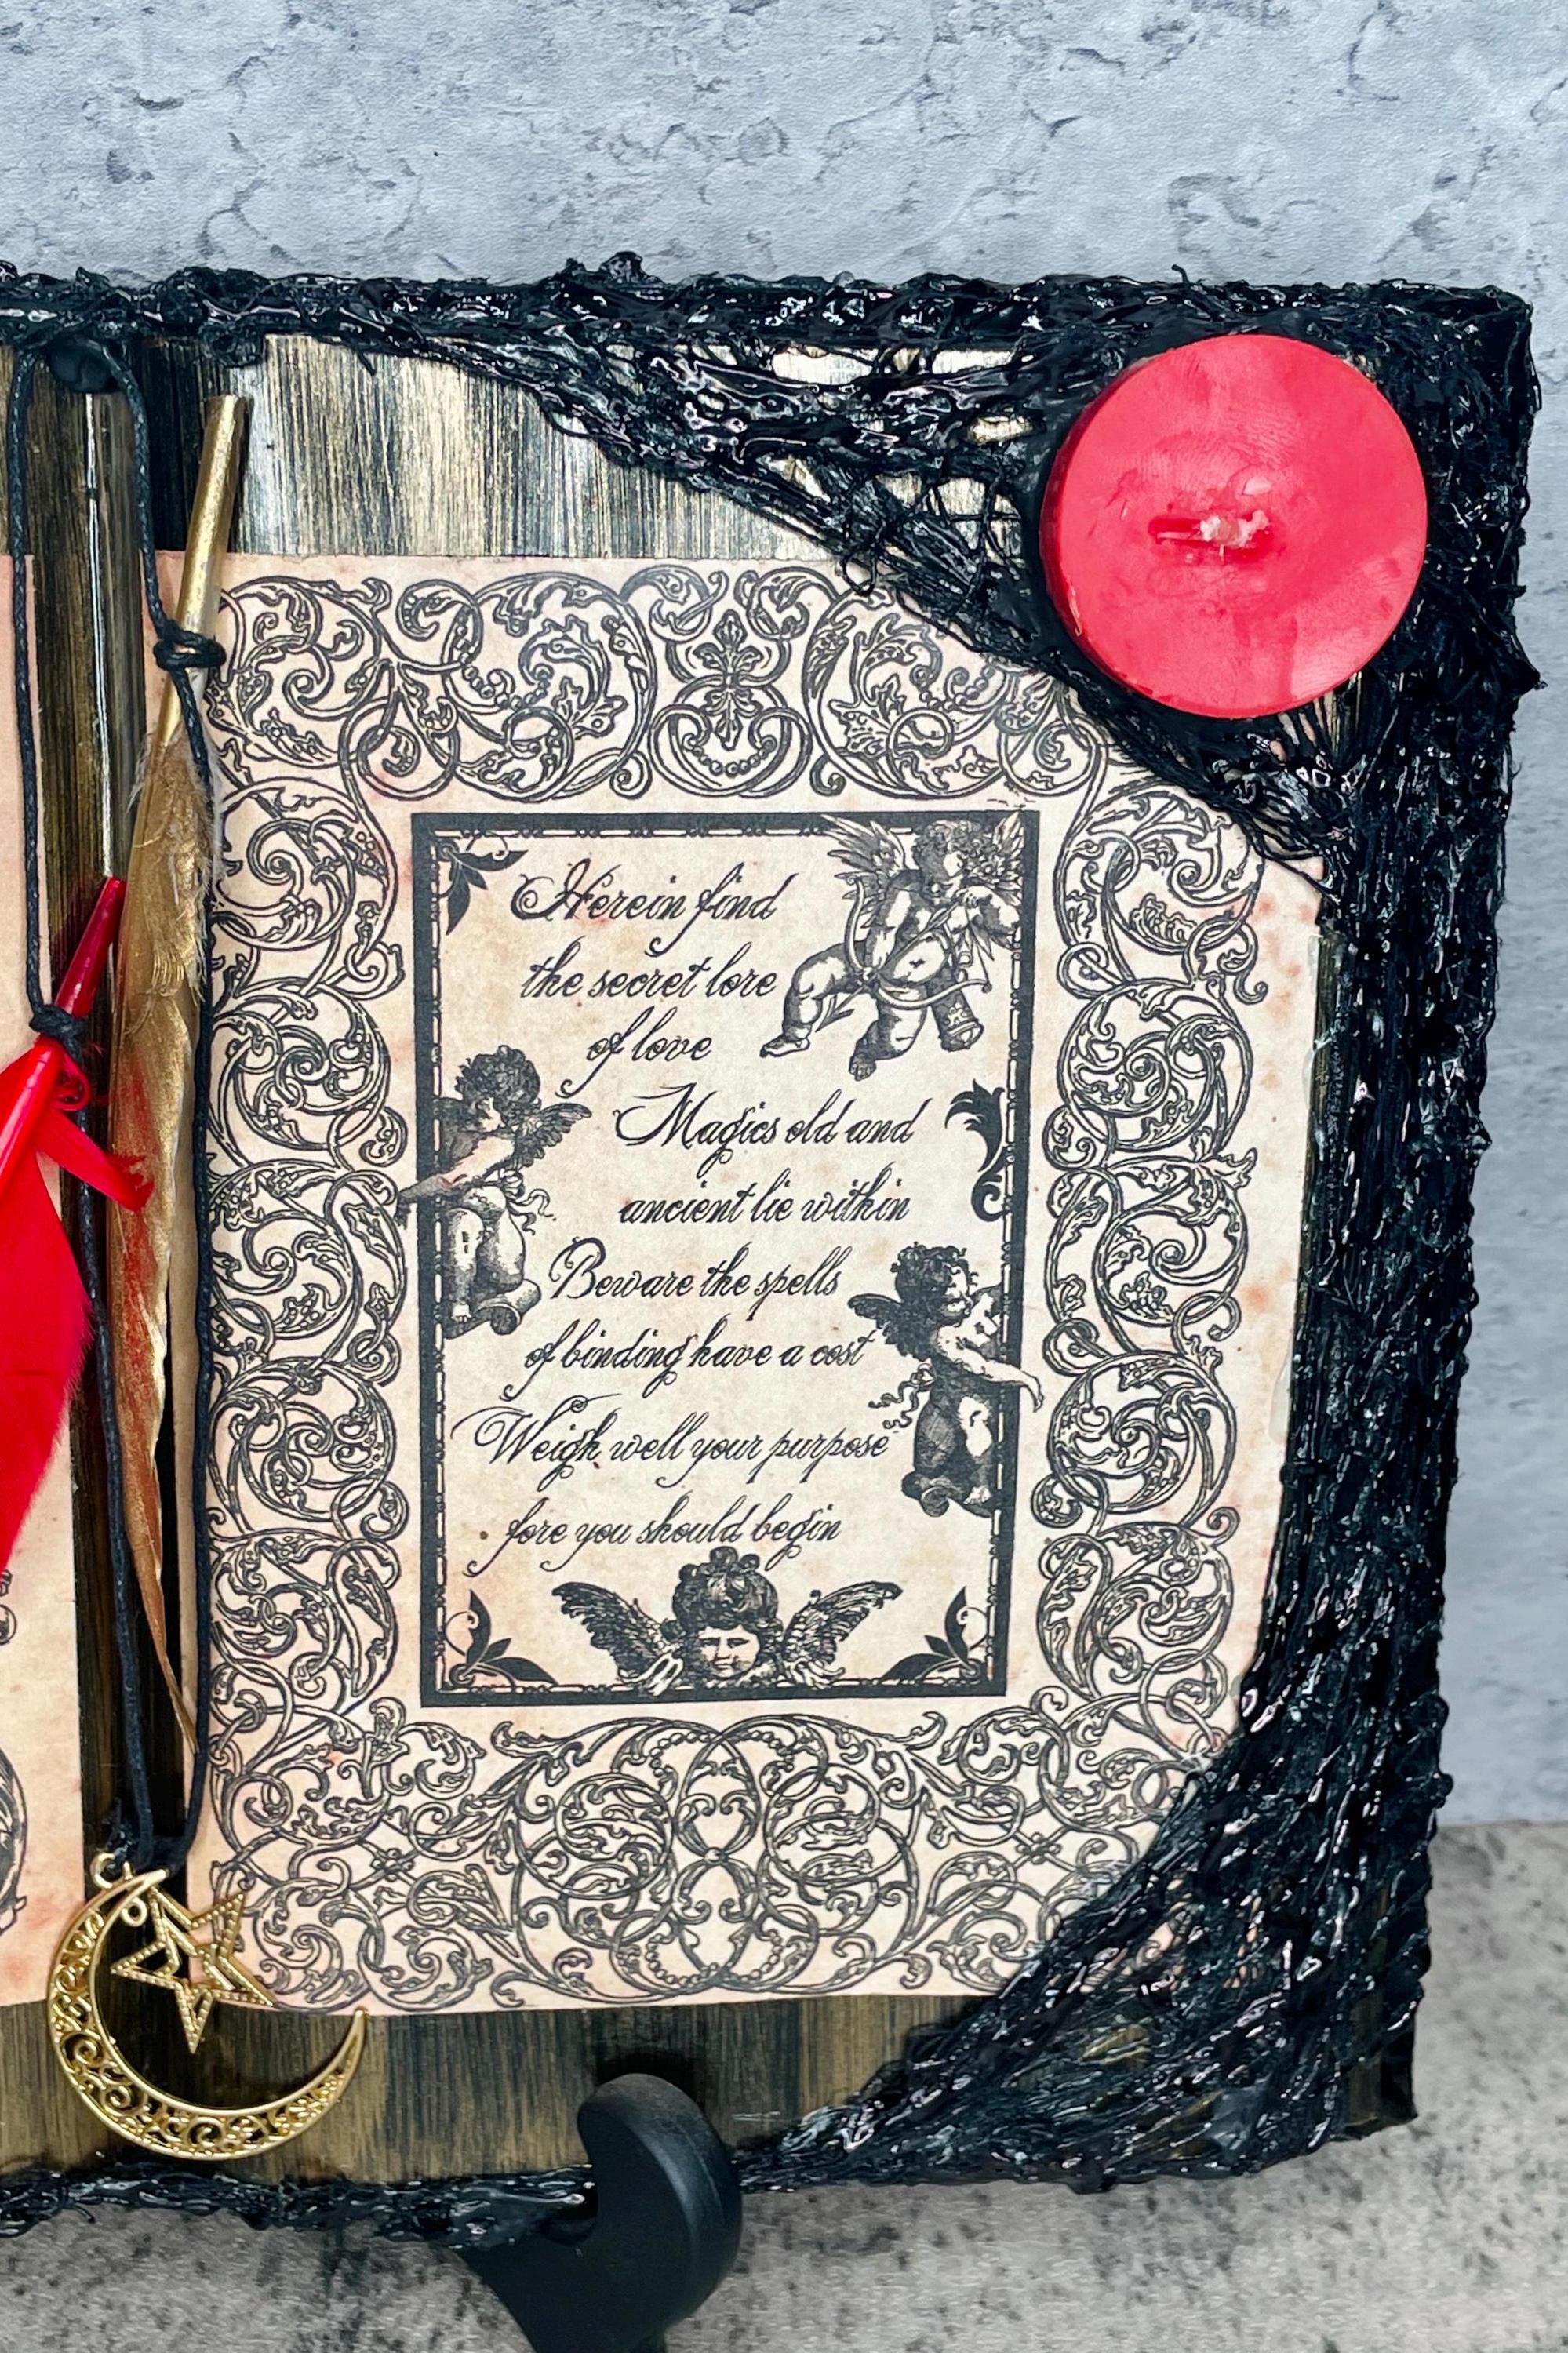 Herein find
the secret lore
of love
Magics old and
ancient lie within
Beware the spells
of binding have a cost
Weigh well your purpose
fore you should begin